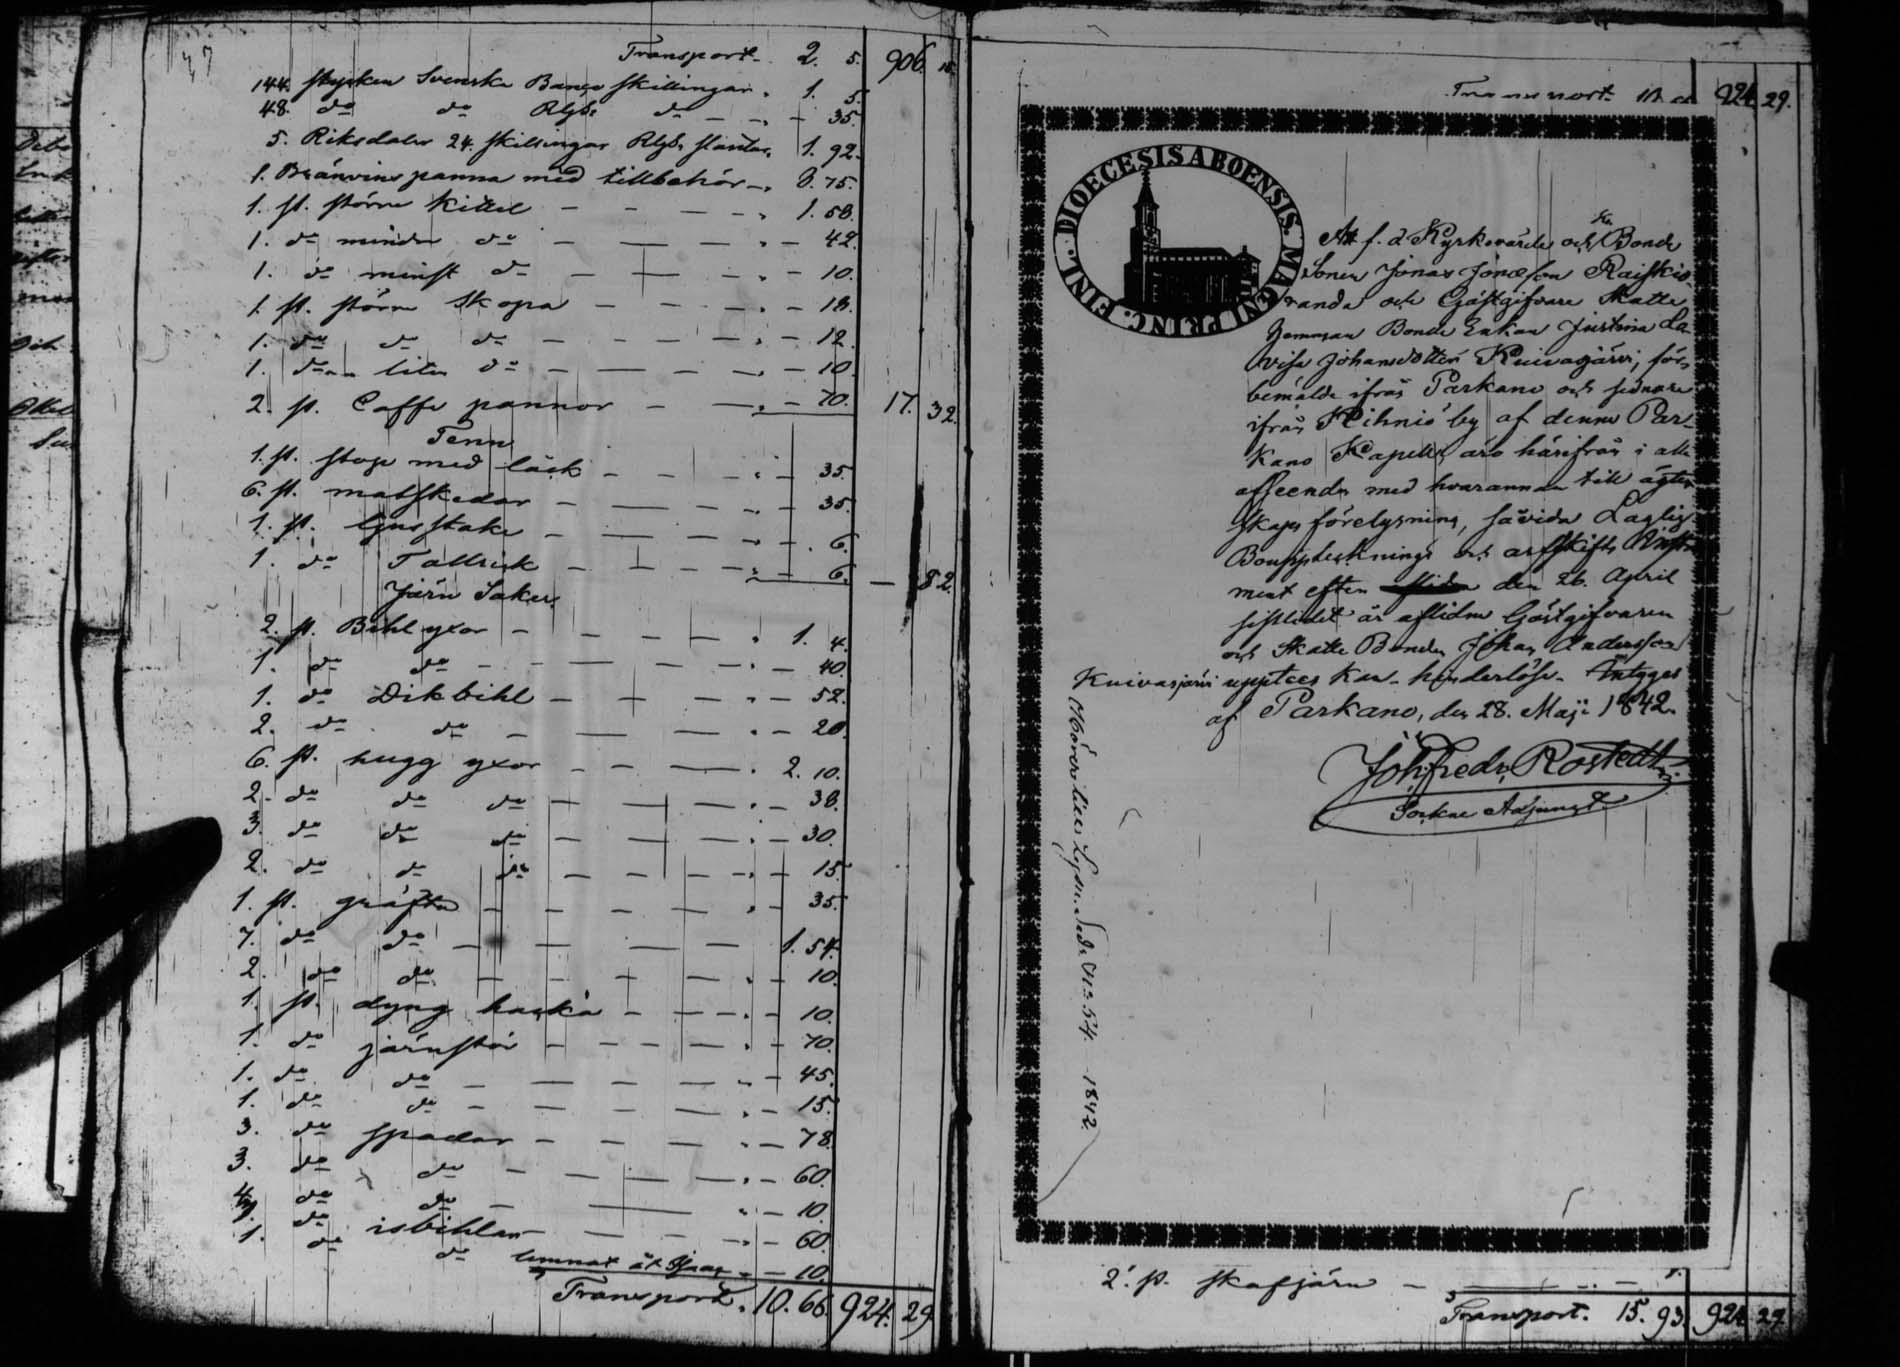 Transport. 2. 5. 906. 15.
144. stycken Svenska Banco Skillingar. 1. 5.
48. do do Rgds do - - - 35.
5. Riksdaler 24. skillingar Rgds slantar. 1. 92.
1. Bränvins panna med tillbehör - 8. 75.
1. st. större Kittel - - - - 1. 50.
1. do mindre do - - - - 42.
1. do minst do - - - - 10.
1. st. större Skopa - - - - 18.
1. do do do - - - - 12.
1. do liten do - - - - 10.
2. st. Caffe pannor - - - 70. 17. 32.
Tenn
1. st. stop med läck - - - 35.
6. st. matskedar - - - - 35.
1. st. ljusstake - - - - 6.
1. do Tallrick - - - - 6. - 82.
Järn Saker.
2. st. Bihl yxor - - - - 1. 4.
1. do do - - - - 40.
1. do Dikbihl - - - - 52.
2. do do - - - - 20.
6. st. hugg yxor - - - 2. 10.
2. do do do - - - 38.
3. do do do - - - 30.
2. do do do - - - 15.
1. st. gräfta - - - - 35.
7. do do - - - - 1. 54.
2. do do - - - - 10.
1. st. dyng hacka - - - 10.
1. do järnstör - - - - 70.
1. do do - - - - 45.
1. do do - - - - 15.
3. do spadar - - - - 78.
3. do do - - - - 60.
do do - - - - 10.
do isbihlar - - - - 60.
1. do do lemnat åt - 10.
Transport. 10. 66. 924. 29.
Transport 924. 29.
DIOECESIS ABOENSIS. MAGNI PRINC. FINL.
Att f. d. Kyrkovärds och Bonde
Sonen Jonas Jonasson Raiskio-
randa och Gästgifvare Skatte
hemman Bonde Enkan Justina Lo
visa Johansdotter Kuivasjärvi, för-
bemälde ifrån Parkano och sednare
ifrån Kihniö by af denne Par-
kano Kapell, äro härifrån i alla
afseenden med hvarannan till ägten-
skaps förelysning, såvida Laglig
Bouppteknings och arfskifts Instru
ment efter den 26. April
sistledit år aflidne Gästgifvaren
och Skatte Bonden Johan Andersson
Kuivasjärvi upptees kan, hinderlöse. Intygas
af Parkano, den 28. Maji 1842.
Joh: Fredr. Rostedt
Sockne Adjunct
Lysn. Sed. No 54. 1842.
2. st. skafjärn - - -
Transport. 15. 93. 924. 29.